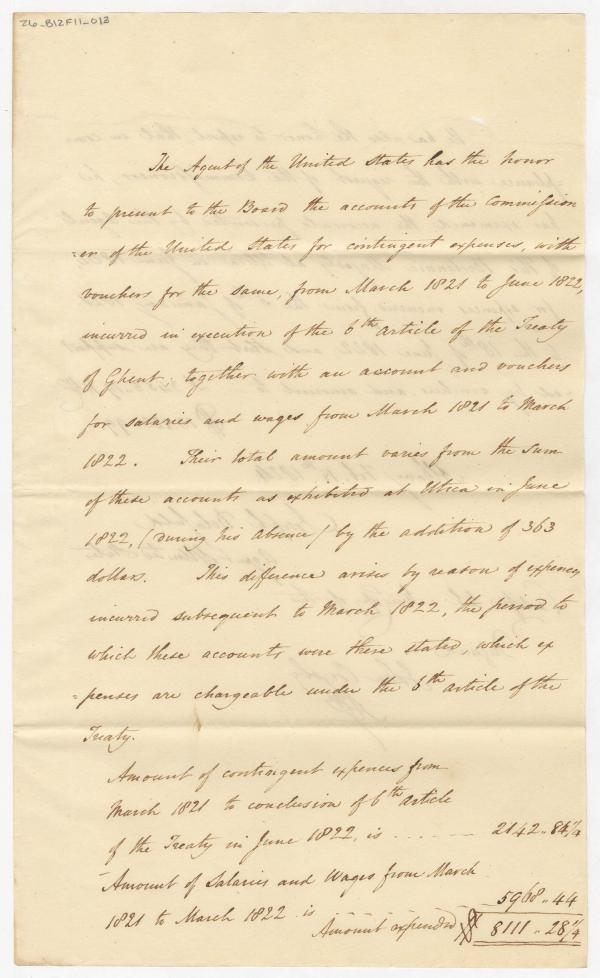 26_B12F11_013
The Agent of the United States has the honor
to present to the Board the accounts of the Commission
=er of the United States for contingent expenses, with
vouchers for the same, from March 1821 to June 1822,
incurred in execution of the 6th article of the Treaty
of Ghent; together with an account and vouchers
for salaries and wages from March 1821 to March
1822. Their total amount varies from the sum
of these accounts as exhibited at Utica in June
1822, (during his absence) by the addition of 363
dollars. This difference arises by reason of expences
incurred subsequent to March 1822, the period to
which these accounts were there stated, which ex
=penses are chargeable under the 6th article of the
Treaty.
Amount of contingent expences from
March 1821 to conclusion of 6th article
of the Treaty in June 1822, is ........ 2142.. 84 1/4
Amount of Salaries and Wages from March
1821 to March 1822 is 5968.. 44
Amount expended $ 8111.. 28 1/4